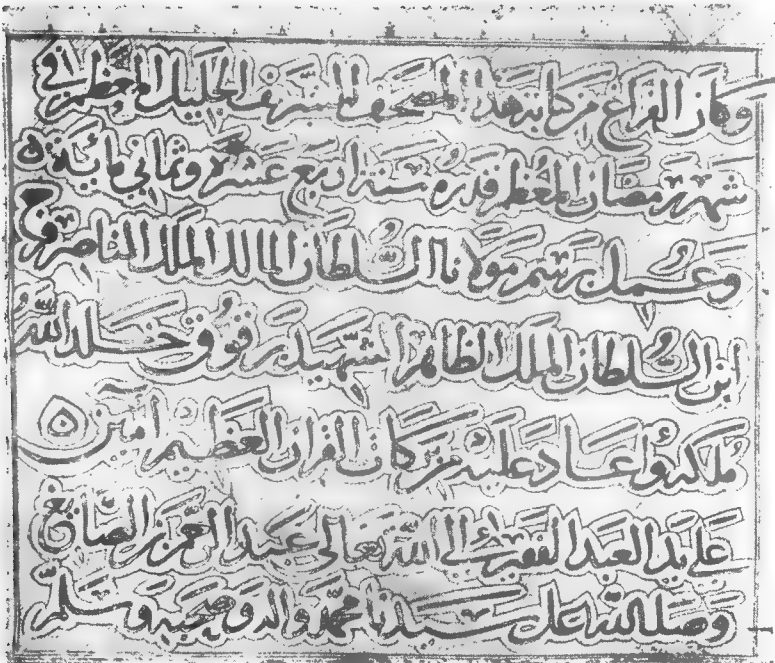 وكان الفراغ من كتابة هذا المصحف الشريف الجليل المعظم في
شهر رمضان المعظم قدره سنة اربع عشرة وثمانى مائة
وعمل برسم مولانا السلطان المالك الملك الناصر فرج
ابن السلطان الملك الظاهر الشهيد برقوق خلد الله
ملكه واعاد عليه من بركات القرآن العظيم امين
على يد العبد الفقير الى الله تعالى عبد العزيز الصائغ
وصلى الله على سيدنا محمد واله وصحبه وسلم